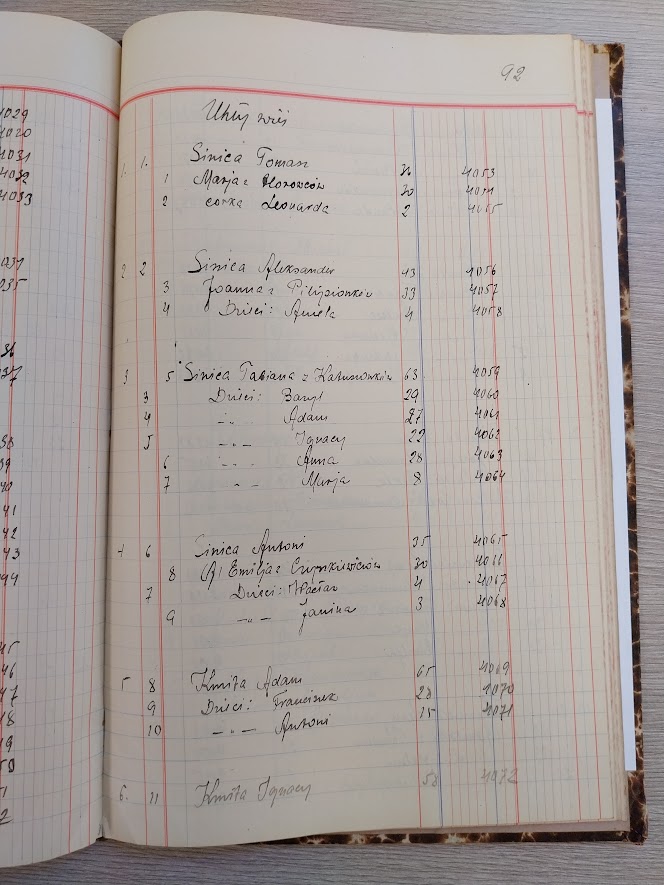 4029
4030
4031
4032
4033
035
92
wieś
1. 1. Sinica Tomasz 4053
1 Marja z 30 4054
2 córka Leonarda 2 4055
2 2 Sinica Aleksander 43 4056
3 Joanna z 33 4057
4 Dzieci: Aniela 4 4058
3 5 Sinica z 63 4059
3 Dzieci: Bazyl 29 4060
4 -„- Adam 27 4061
5 -„- Ignacy 22 4062
6 -„- Anna 28 4063
7 „ - Marja 8 4064
4 6 Sinica Antoni 35 4065
8 Emilja z 30 4066
7 Dzieci: Wacław 4 4067
9 -„- Janina 3 4068
5 8 Kmita Adam 65 4069
9 Dzieci: Franciszek 28 4070
10 -„- Antoni 15 4071
6. 11 Kmita Ignacy 50 4072